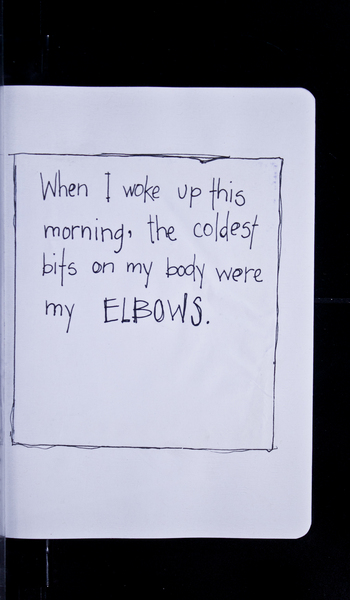 When I woke up this
morning, the coldest
bits on my body were
my ELBOWS.